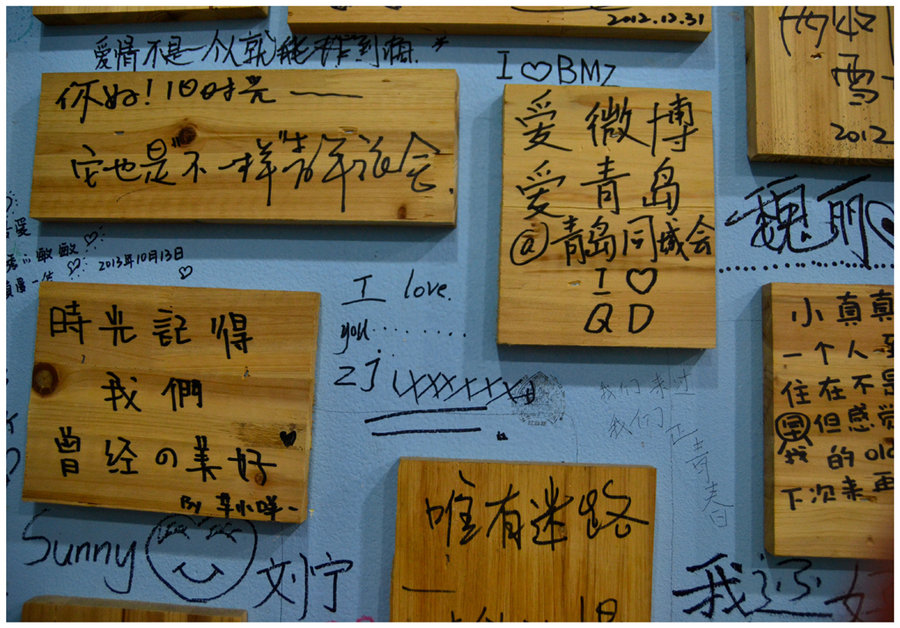 2012.12.31
爱情不是一个人就能作到梅.*
I♡BMZ
你好!旧时光——
它也是不一样青年旅舍.
爱微博
爱青岛
@青岛同城会
I♡
QD
雪
2012
魏丽
2013年10月13日
時光記得
我們
曾经の美好
I love.
you........
zj (XXXXXXX)
我们来过
我们
正青春
小真真
一个人
住在不是
但感觉
我的old
下次来再
唯有迷路
Sunny
刘宁
我还好